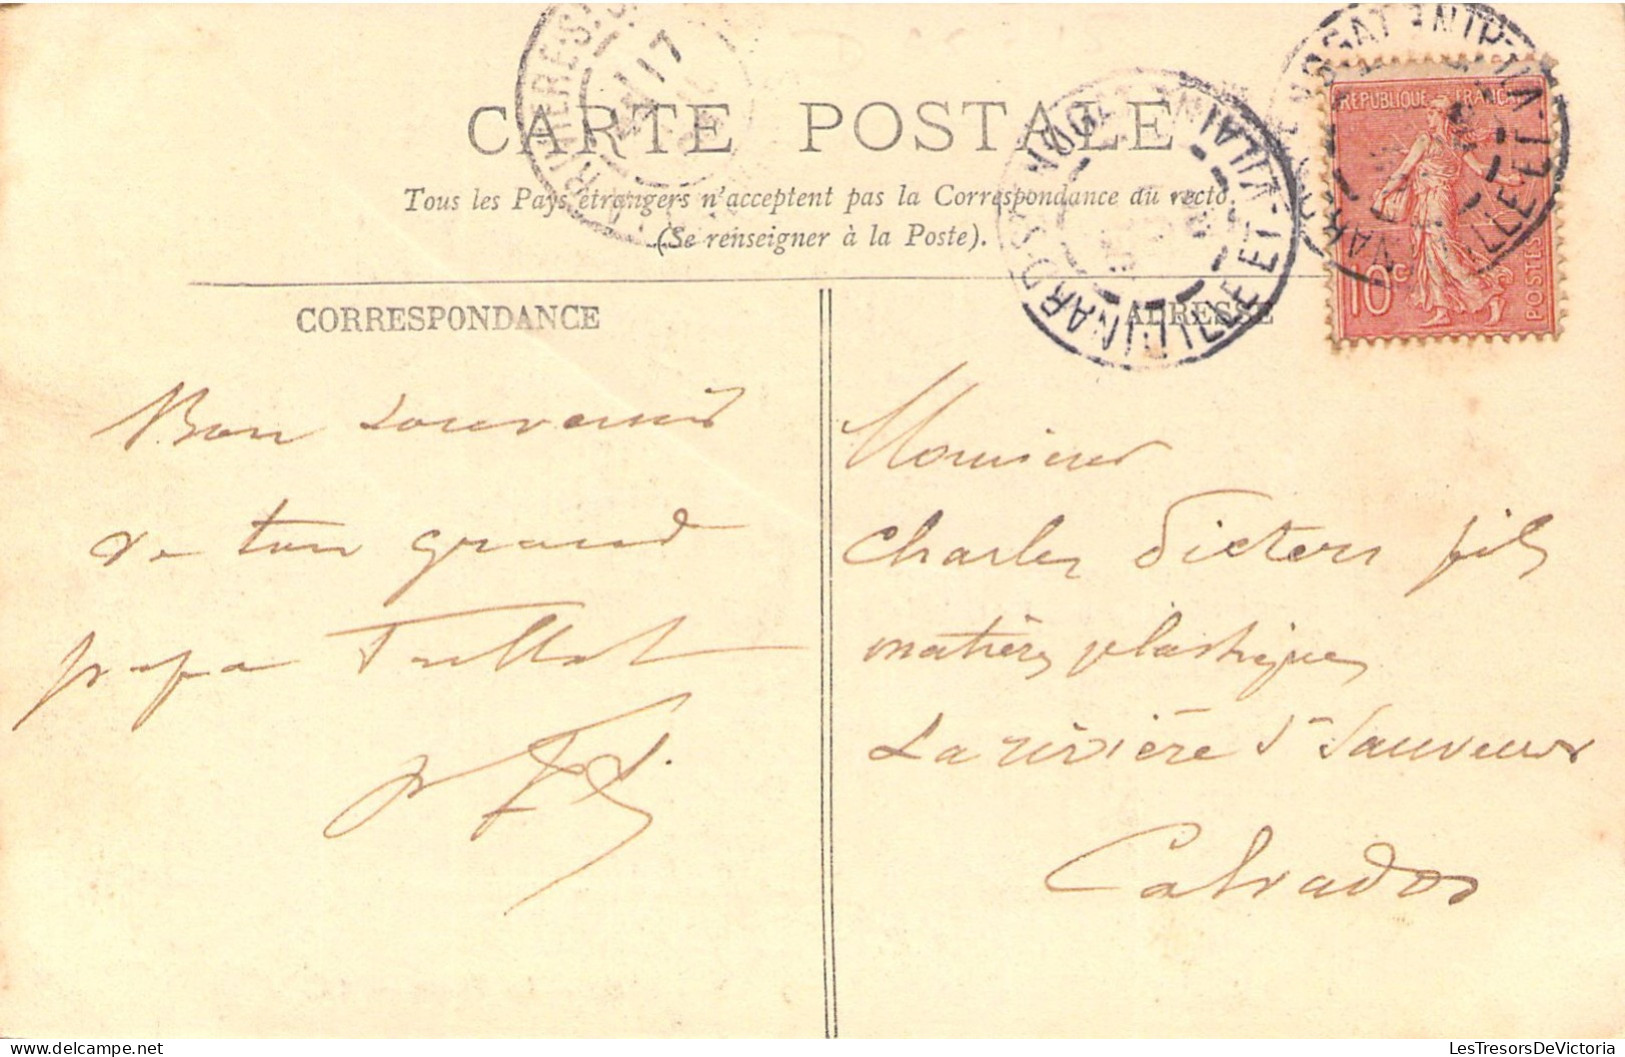 CARTE POSTALE
Tous les Pays étrangers n'acceptent pas la Correspondance au recto.
(Se renseigner à la Poste).
CORRESPONDANCE
ADRESSE
REPUBLIQUE FRANÇAISE
10c
POSTES
DINARD-ST-ENOGAT
ILLE-ET-VILAINE
17
Bon souvenir
de ton grand
papa
Monsieur
Charles fils
matières plastiques
La rivière St Sauveur
Calvados
LesTresorsDeVictoria